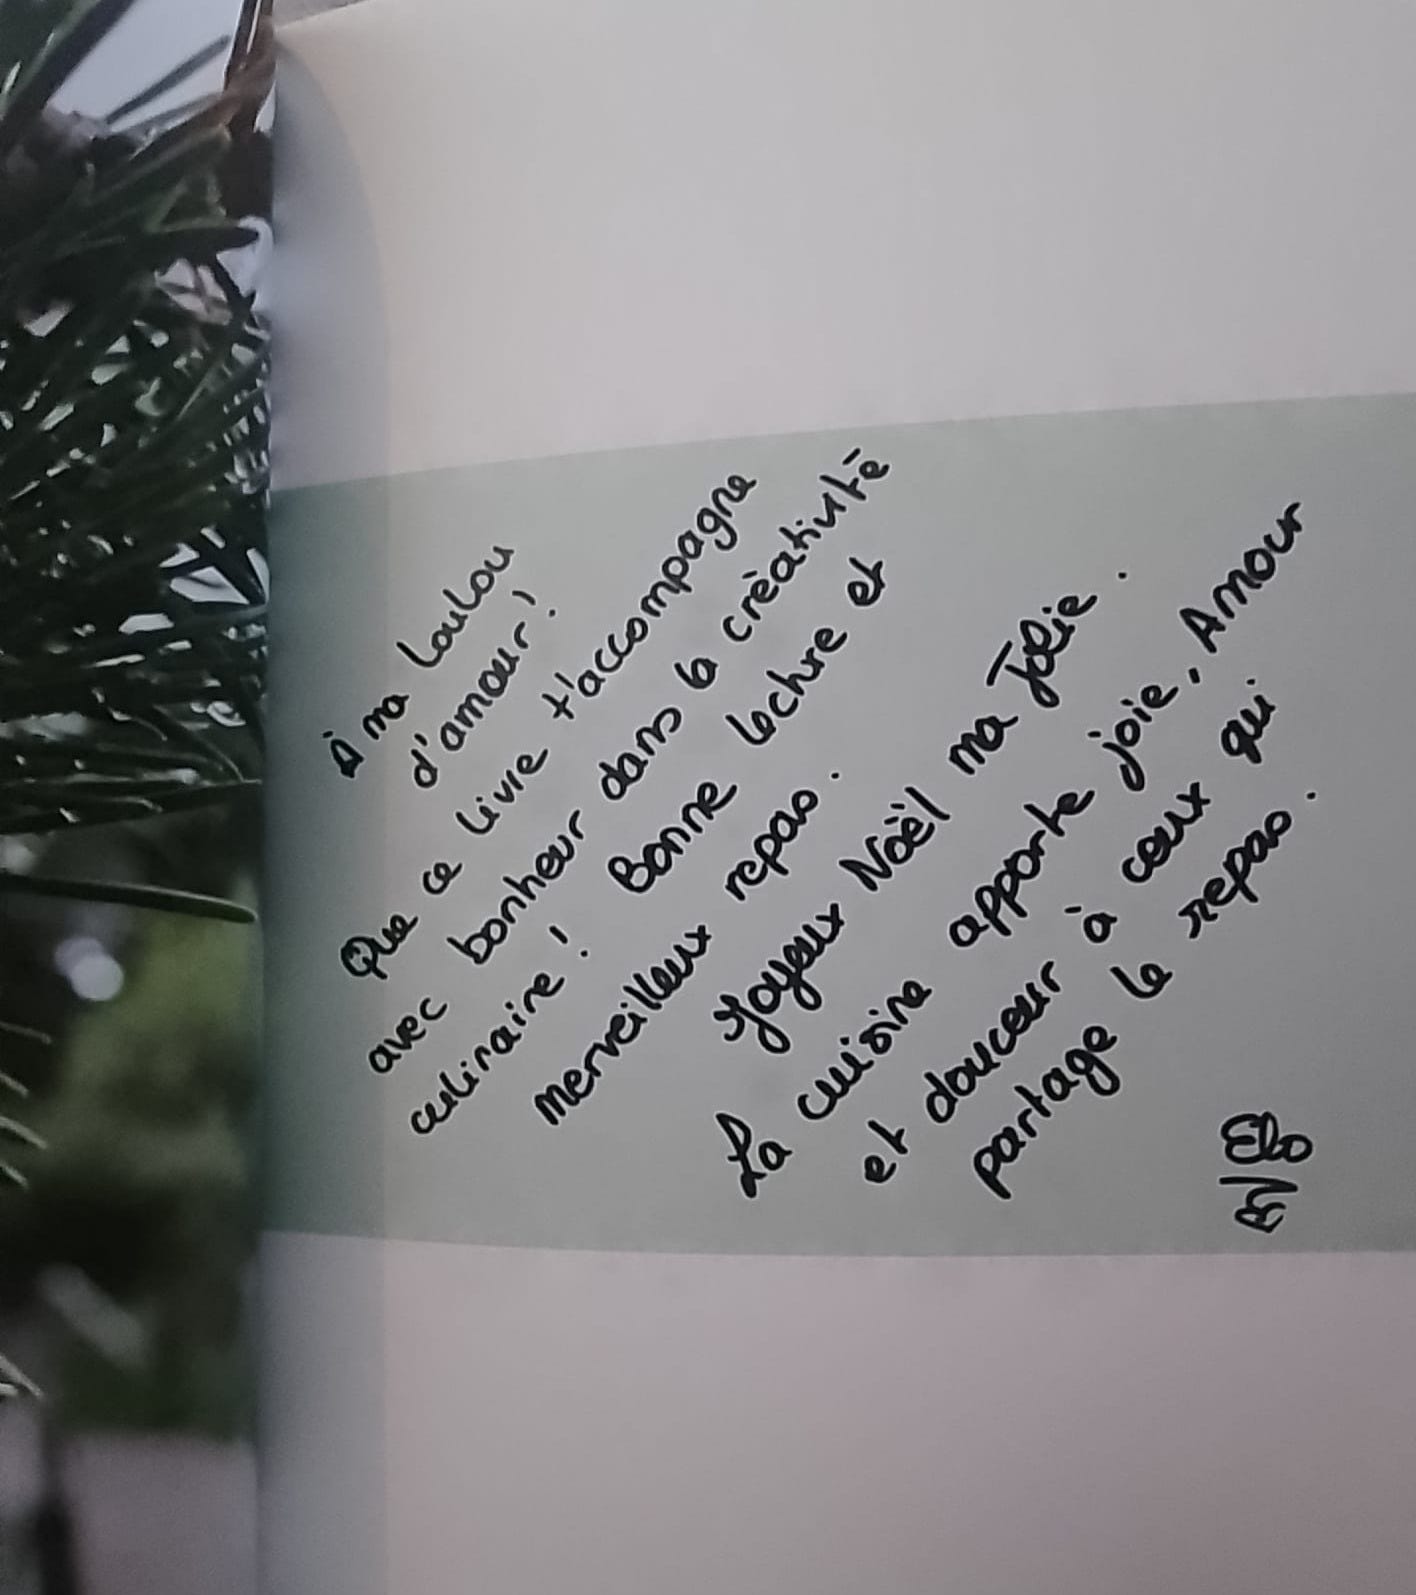 À ma Loulou
d'amour!
Que ce livre t'accompagne
avec bonheur dans la créativité
culinaire! Bonne lecture et
merveilleux repas.
Joyeux Noël ma Jolie.
La cuisine apporte joie, Amour
et douceur à ceux qui
partage le repas.
Elo